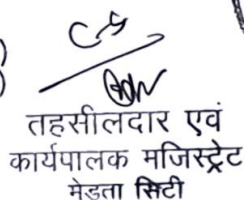 तहसीलदार एवं
कार्यपालक मजिस्ट्रेट
मेडता सिटी